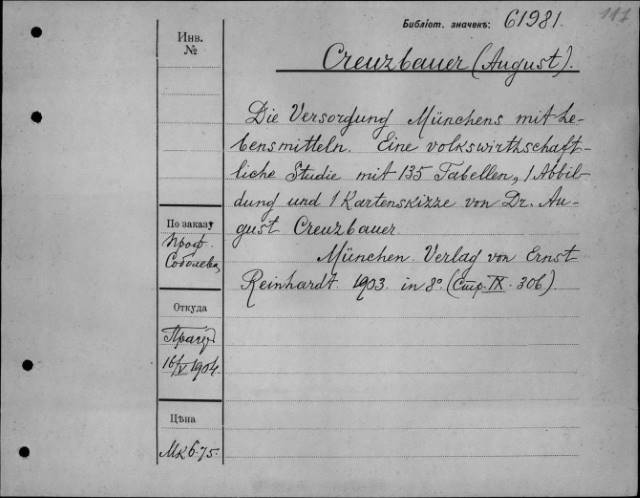 117
Библіот. значекъ: 61981.
Инв.
№
Creuzbauer (August).
Die Versorgung Münchens mit Le-
bensmitteln. Eine volkswirthschaft-
liche Studie mit 135 Tabellen, 1 Abbil-
dung und 1 Kartenskizze von Dr. Au-
gust Creuzbauer.
München. Verlag von Ernst
Reinhardt. 1903. in 8° (Стр. IX. 306)
По заказу
Проф.
Соболева
Откуда
16/V 1904.
Цѣна
Mk 6.75.